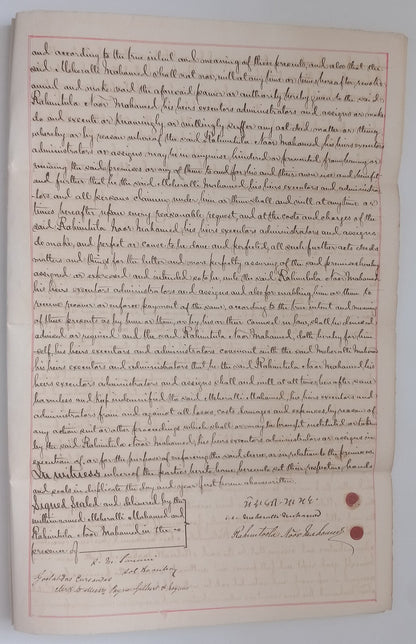 and according to the true intent and meaning of these presents, and also that the
said Meherally Mahomed shall not nor will at any time or times hereafter, revoke
annul and make void the aforesaid power or authority hereby given to the said
Rahimtula Noor Mahomed his heirs executors administrators and assigns or make
do and execute or knowingly or willingly suffer any act deed matter or thing
whereby or by reason whereof the said Rahimtula Noor Mahomed, his heirs executors
administrators or assigns may be in anywise hindered or prevented from having or
the said premises or any of them to and for his and their own use and benefit
and further that he the said Meherally Mahomed, his heirs executors and administra
-tors and all persons claiming under him or them shall and will at any time or
times hereafter upon every reasonable request, and at the costs and charges of the
said Rahimtula Noor Mahomed his heirs executors administrators and assigns
do make, and perfect or cause to be done and perfected, all such further acts deeds
matters and things for the better and more perfectly assuring of the said premises hereby
assigned or expressed and intended so to be, unto the said Rahimtula Noor Mahomed
his heirs executors administrators and assigns and also for enabling him or them to
recover or enforce payment of the same, according to the true intent and meaning
of these presents as by him or them, or by his or their counsel in law, shall be devised
advised or required and the said Rahimtula Noor Mahomed, doth hereby for him
-self, his heirs executors and administrators covenant with the said Meherally Mahomed
his heirs executors and administrators that he the said Rahimtula Noor Mahomed, his
heirs executors administrators and assigns shall and will at all times hereafter save
harmless and keep indemnified the said Meherally Mahomed, his heirs executors and
administrators from and against all losses costs damages and expences by reason of
any action suit or other proceedings which shall or may be brought instituted or taken
by the said Rahimtula Noor Mahomed, his heirs executors administrators or assigns in
execution of, or for the purpose of enforcing the said decree, or in relation to the premises
In witness whereof the parties hereto have hereunto set their respective hands
and seals in duplicate the day and year first herein abovewritten
Signed Sealed and delivered by the
withinnamed Meherally Mahomed and
Rahimtula Noor Mahomed in the
presence of
Meheralli Mahomed
Rahimtoola Noor Mahomed
Sol. Bombay
Gocaldas
Clerk to Messrs Payne Gilbert &